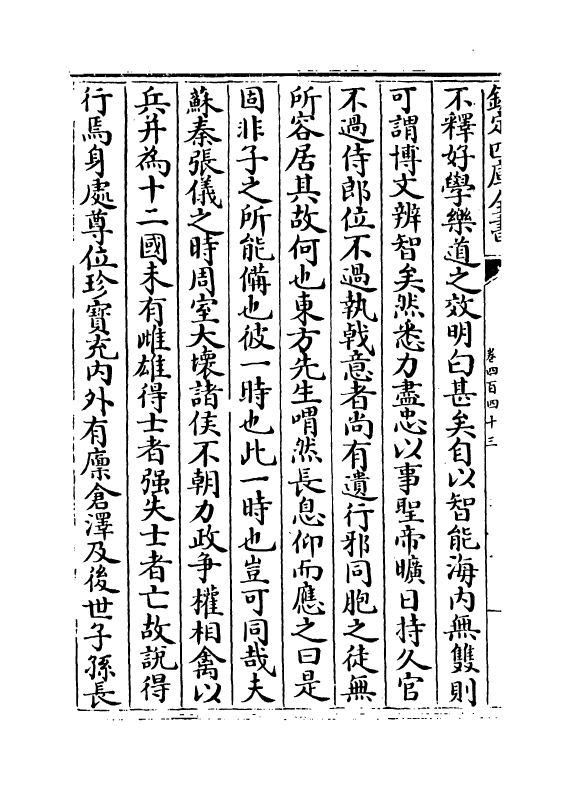 欽定四庫全書
卷四百四十三
不釋好學樂道之效明白甚矣自以智能海內無雙則
可謂博文辨智矣然悉力盡忠以事聖帝曠日持久官
不過侍郎位不過執戟意者尚有遺行邪同胞之徒無
所容居其故何也東方先生喟然長息仰而應之曰是
固非子之所能備也彼一時也此一時也豈可同哉夫
蘇秦張儀之時周室大壞諸侯不朝力政爭權相禽以
兵并為十二國未有雌雄得士者强失士者亡故說得
行焉身處尊位珍寶充內外有廩倉澤及後世子孫長